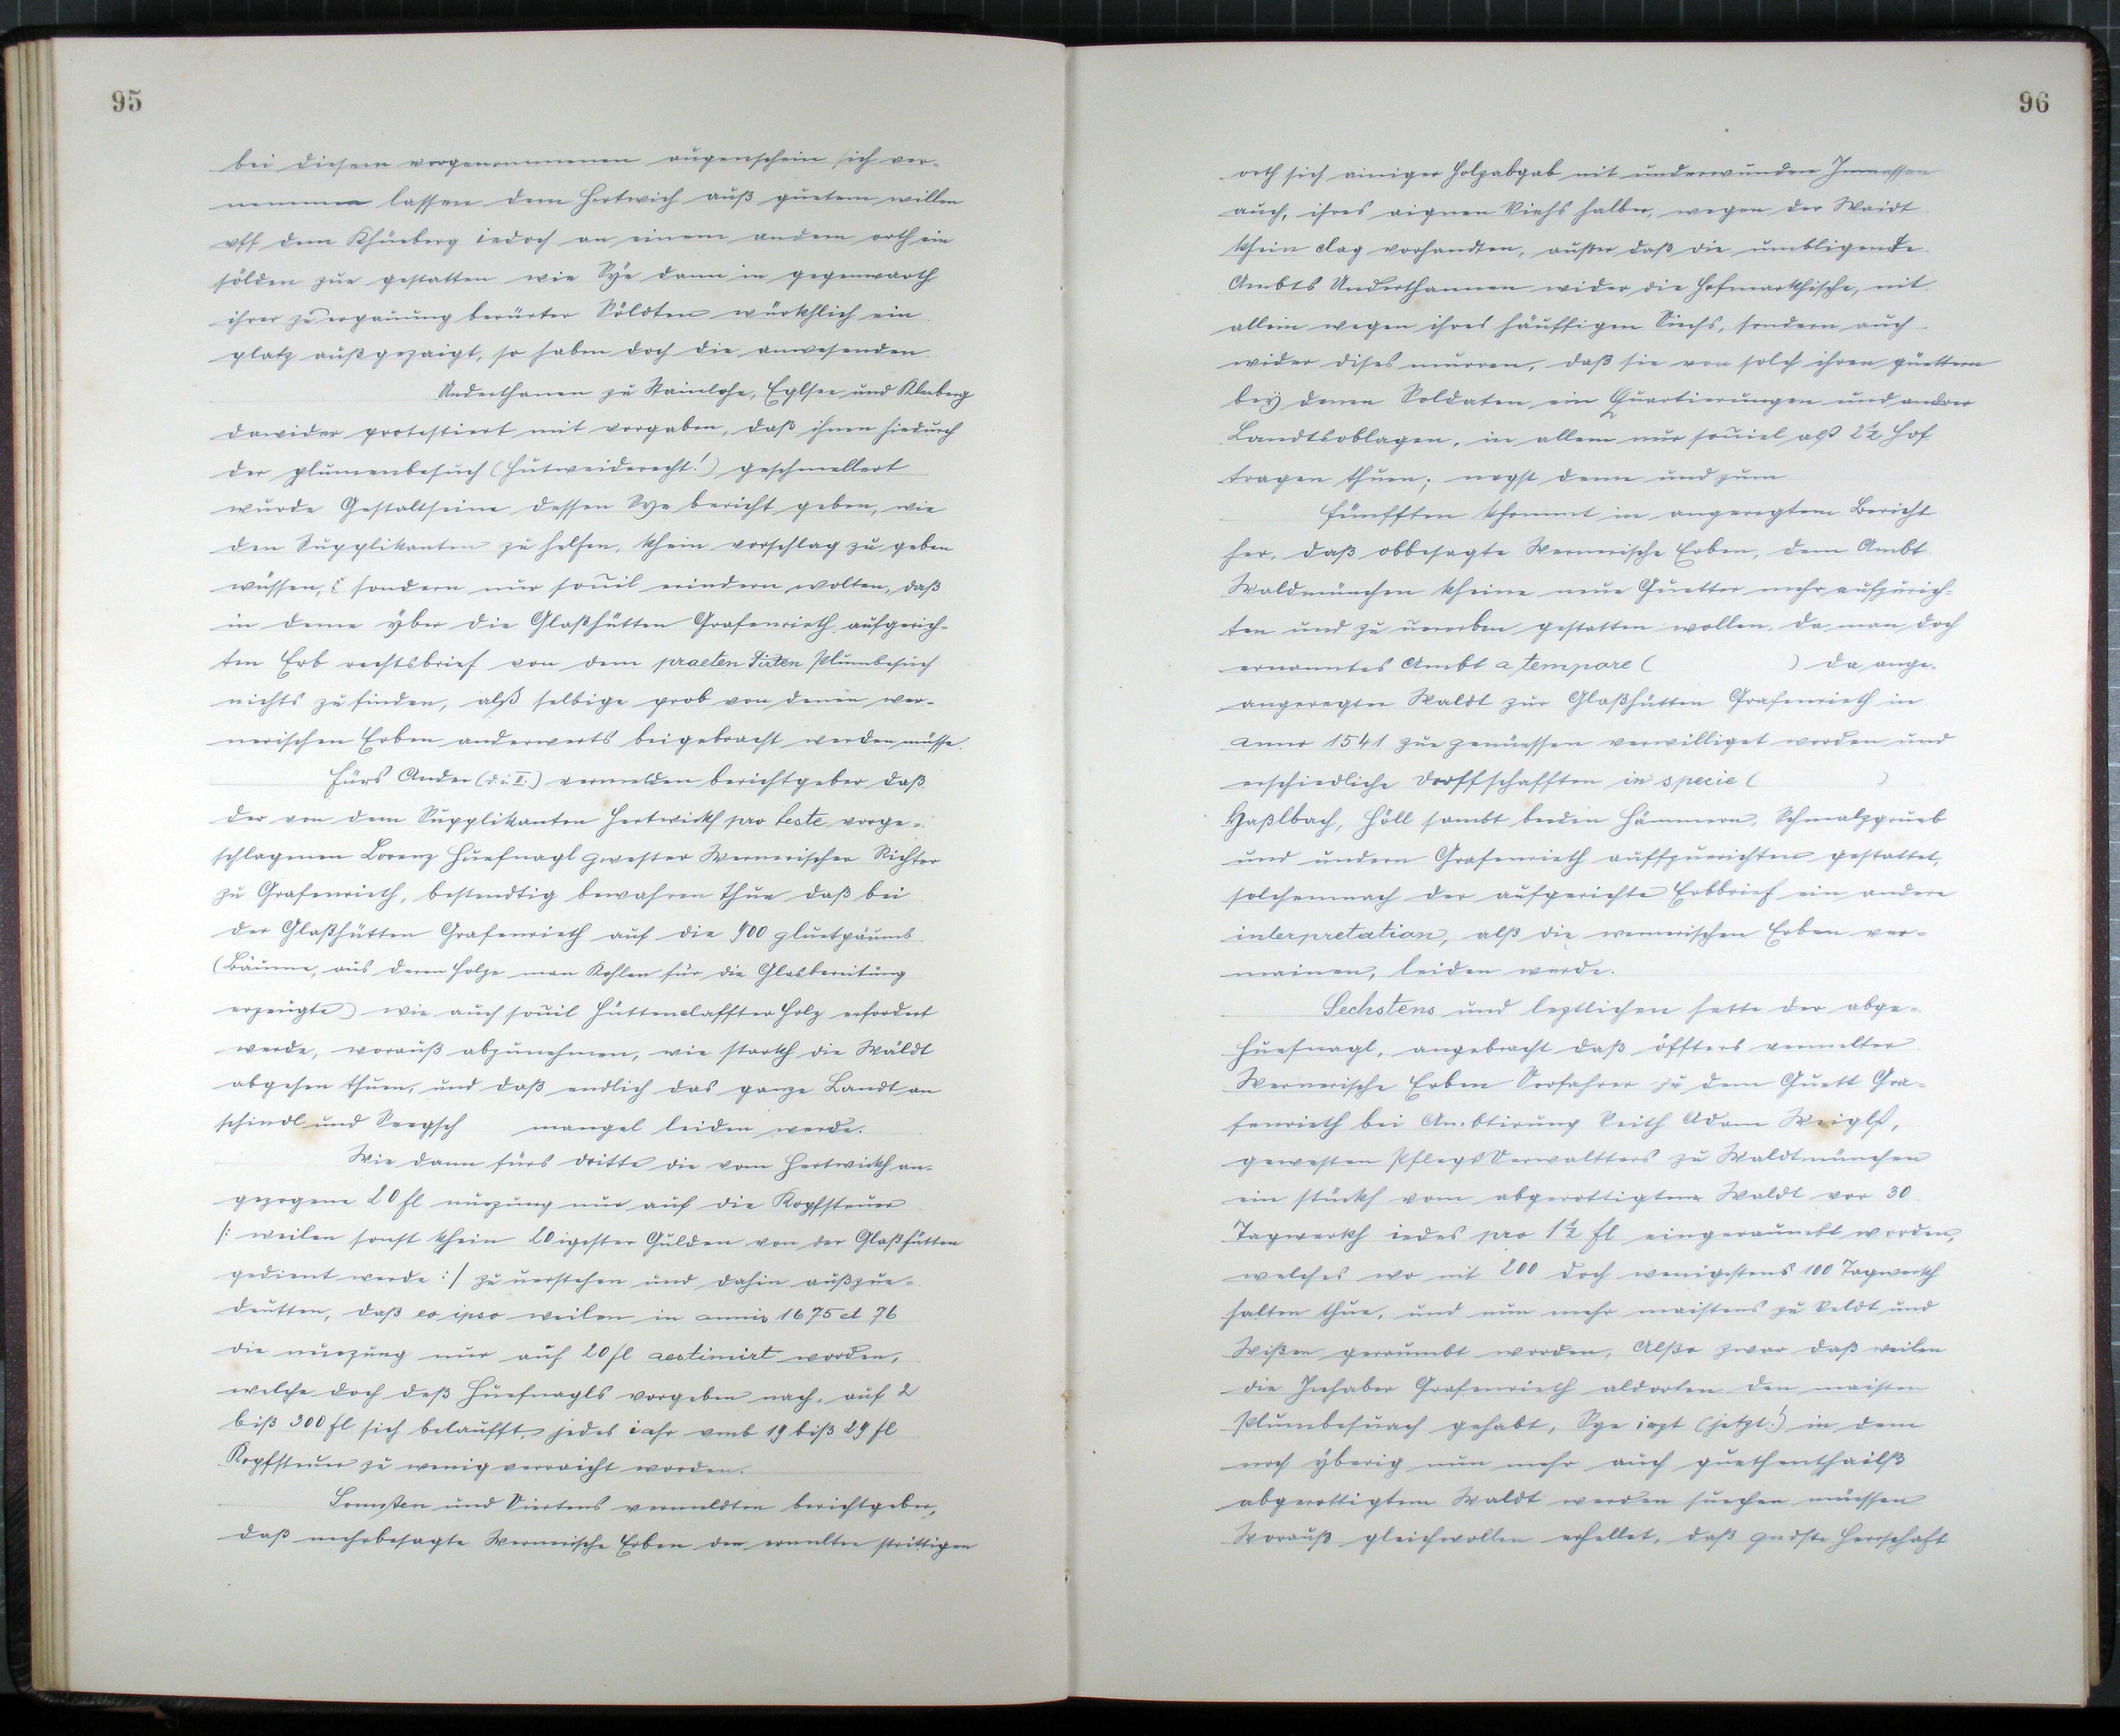 95
bei diesem vorgenommenen augenschein sich ver-
nemmen lassen dem Hertwich auß guetem willen
vff dem Khüeberg iedoch an einem andern orth ein
sölden zue gestatten wie Sÿe dann in gegenwarth
ihrer zu erpauung berürter Söldten würkhlich ein
platz außgezaigt, so haben doch die anwesenden
Underthanen zu Stainlohe, Eglsee und Kleeberg
dawider protestiert mit vorgeben, daß ihnen hiedurch
der plumenbesuch (Hutweiderecht!) geschmellert
wurde Gestaltseine dessen Sye bericht geben, wie
den Supplikanten zu helfen, khein vorschlag zu geben
wüssen, sondern nur souil erindern wolten, daß
in deme ÿber die Glaßhütten Grafenrieth aufgerich-
ten Erb rechtsbrief von dem praeten Plumbesuch
nichts zu finden, alß selbige prob von denen wer-
nerischen Erben anderwerts beigebracht werden müsse.
Fürs Ander (d.i. II.) vermelden berichtgeber daß
der von dem Supplikanten Hertwickh pro teste vorge-
schlagenen Lorenz Huefnagl gwester Wernerischer Richter
zu Grafenrieth, bestendtig bewahren thue daß bei
der Glaßhütten Grafenrieth auf die 900 gluetpäums
(Bäume, aus deren Holze man Kohlen für die Glasbereitung
erzeugte) wie auch souil Hüttenclaffter Holz erfordert
werde, worauß abzunehmen, wie starkh die Wäldt
abgehen thuen, und daß endlich das ganze Landt an
schindl und mangel leiden werde.
Wie dann fürs dritte die vom Hertwickh an-
gezogene 20 fl nuzung nur auf die Kopfsteuer
/: weilen sonst khein 20 igster Gulden von der Glaßhütten
gedient werde :/ zu uerstehen und dahin außzue-
deutten, daß eo ipso weilen in annis 1675 et 76
die nuzung nur auf 20 fl aestimirt worden,
welche doch deß Huefnagls vorgeben nach, auf 2
biß 300 fl sich belaufft, jedes iahr vmb 19 biß 29 fl
Kopfsteuer zu wenig verraicht worden.
und Viertens vermeldten berichtgeber,
daß mehrbesagte Wernerische Erben der ermelten strittigen
96
orth sich ainiger Holzabgab nit underwunden Inmassen
auch, ihres aignen Viehs halber, wegen der Waidt
khein clag vorhandten, außer daß die umbligende
Ambts Underthannen wider die Hofmarkhische, nit
allein wegen ihres häuffigen Viechs, sondern auch
wider dises murren, daß sie von solch ihren güettern
beÿ denen Soldaten ein Quartierungen und andrer
Landtsoblagen, in allem nur souiel alß 2½ Hof
tragen thuen; negst deme und zum
Fünfften khommt in angeregtem Bericht
her, daß obbesagte Wernerische Erben, dem Ambt
Waldmünchen kheine neue Guetter mehr aufzurich-
ten und zu uererben gestatten wollen, da man doch
ernanntes Ambt a tempore ( ) da ange-
angeregter Waldt zur Glaßhütten Grafenrieth in
anno 1541 zue genüessen verwilliget worden und
erschiedliche Dorffschafften in specie ( )
Haßlbach, Höll sambt beeden Hämmern, Schmalzgrueb
und undern Grafenrieth auffzuerichten gestattet,
solchemnach der aufgerichte Erbbrief ein andere
interpretation, alß die wernerischen Erben ver-
mainen, leiden werde.
Sechstens und leztlichen hette der abge-
Huefnagl, angebracht daß öffters vermelter
Wernerische Erben Vorfahrer zu dem Guett Gra-
fenrieth bei Anbtirung Veith Adam Weiglß,
gewesten PflegsVerwaltters zu Waldtmünchen
ein stückh vom abgerottigten Waldt vor 30
Tagwerkh iedes pro 1½ fl eingeraumbt worden,
welches wo nit 200 doch wenigstens 100 Tagwerkh
halten thue, und nun mehr maistens zu Veldt und
Wißen geraumbt worden, Alßo zwar daß weilen
die Inhaber Grafenrieth aldorten den maisten
Plumbesuech gehabt, Sye iezt (jetzt!) in dem
noch ÿberig nun mehr auch guethenthailß
abgerottigtem Waldt werden suechen müessen
Worauß gleichwollen erhellet, daß gndste Herrschaft